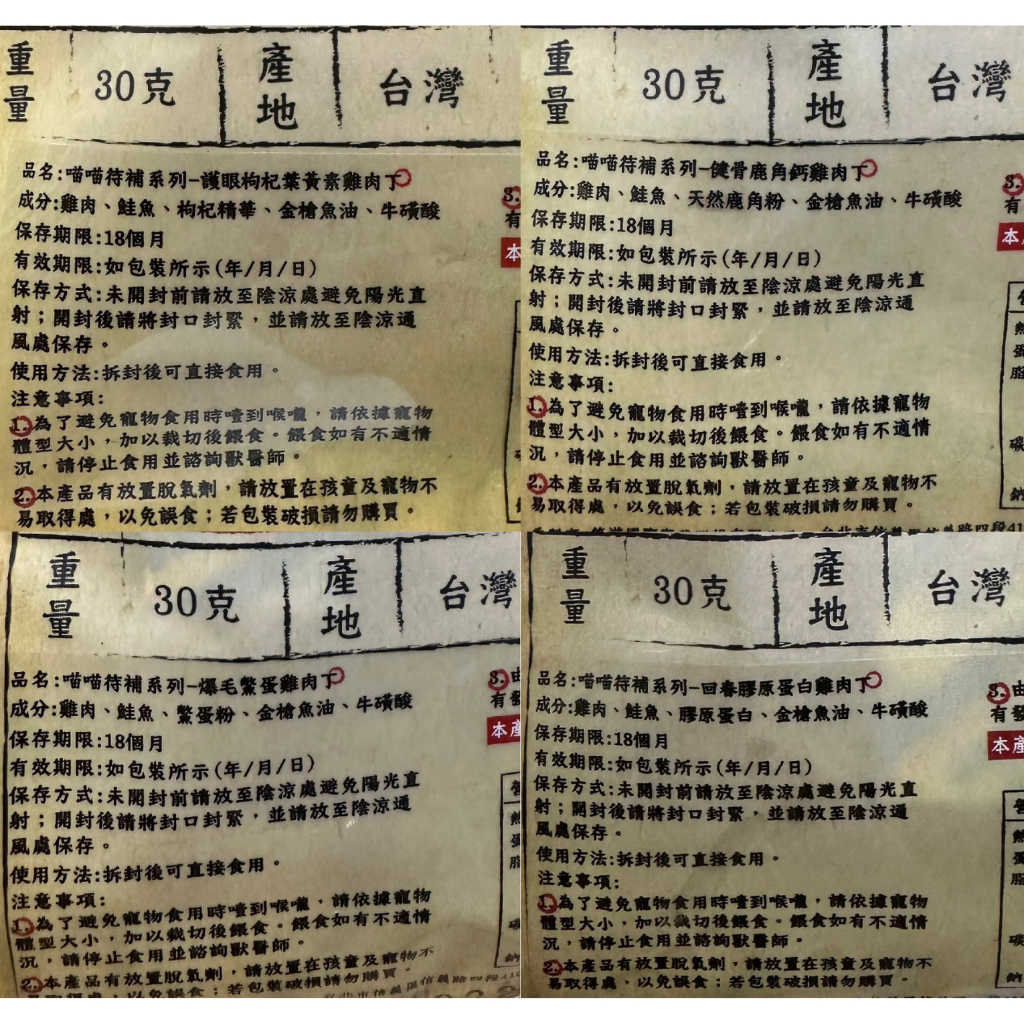 重量 30克 產地 台灣
品名:喵喵待補系列-護眼枸杞葉黃素雞肉丁
成分:雞肉、鮭魚、枸杞精華、金槍魚油、牛磺酸
保存期限:18個月
有效期限:如包裝所示(年/月/日)
保存方式:未開封前請放至陰涼處避免陽光直
射;開封後請將封口封緊,並請放至陰涼通
風處保存。
使用方法:拆封後可直接食用。
注意事項:
1.為了避免寵物食用時噎到喉嚨,請依據寵物
體型大小,加以裁切後餵食。餵食如有不適情
況,請停止食用並諮詢獸醫師。
2.本產品有放置脫氧劑,請放置在孩童及寵物不
易取得處,以免誤食;若包裝破損請勿購買。
3.
有
本
重量 30克 產地 台灣
品名:喵喵待補系列-健骨鹿角鈣雞肉丁
成分:雞肉、鮭魚、天然鹿角粉、金槍魚油、牛磺酸
保存期限:18個月
有效期限:如包裝所示(年/月/日)
保存方式:未開封前請放至陰涼處避免陽光直
射;開封後請將封口封緊,並請放至陰涼通
風處保存。
使用方法:拆封後可直接食用。
注意事項:
1.為了避免寵物食用時噎到喉嚨,請依據寵物
體型大小,加以裁切後餵食。餵食如有不適情
況,請停止食用並諮詢獸醫師。
2.本產品有放置脫氧劑,請放置在孩童及寵物不
易取得處,以免誤食;若包裝破損請勿購買。
3.
有
本
重量 30克 產地 台灣
品名:喵喵待補系列-爆毛鱉蛋雞肉丁
成分:雞肉、鮭魚、鱉蛋粉、金槍魚油、牛磺酸
保存期限:18個月
有效期限:如包裝所示(年/月/日)
保存方式:未開封前請放至陰涼處避免陽光直
射;開封後請將封口封緊,並請放至陰涼通
風處保存。
使用方法:拆封後可直接食用。
注意事項:
1.為了避免寵物食用時噎到喉嚨,請依據寵物
體型大小,加以裁切後餵食。餵食如有不適情
況,請停止食用並諮詢獸醫師。
2.本產品有放置脫氧劑,請放置在孩童及寵物不
易取得處,以免誤食;若包裝破損請勿購買。
3.由
有發
本產
重量 30克 產地 台灣
品名:喵喵待補系列-回春膠原蛋白雞肉丁
成分:雞肉、鮭魚、膠原蛋白、金槍魚油、牛磺酸
保存期限:18個月
有效期限:如包裝所示(年/月/日)
保存方式:未開封前請放至陰涼處避免陽光直
射;開封後請將封口封緊,並請放至陰涼通
風處保存。
使用方法:拆封後可直接食用。
注意事項:
1.為了避免寵物食用時噎到喉嚨,請依據寵物
體型大小,加以裁切後餵食。餵食如有不適情
況,請停止食用並諮詢獸醫師。
2.本產品有放置脫氧劑,請放置在孩童及寵物不
易取得處,以免誤食;若包裝破損請勿購買。
3.由
有發
本產